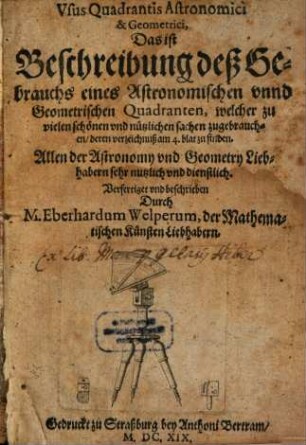 Vsus Quadrantis Astronomici
& Geometrici,
Das ist
Beschreibung deß Ge-
brauchs eines Astronomischen vnnd
Geometrischen Quadranten, welcher zu
vielen schönen vnd nützlichen sachen zugebrauch-
en/ deren verzeichnuß am 4. blat zu finden.
Allen der Astronomy vnd Geometry Lieb-
habern sehr nutzlich vnd dienstlich.
Verfertiget vnd beschrieben
Durch
M. Eberhardum Welperum, der Mathema-
tischen Künsten Liebhabern.
Ex Lib.
Gedruckt zu Straßburg bey Anthoni Bertram/
M. DC. XIX.